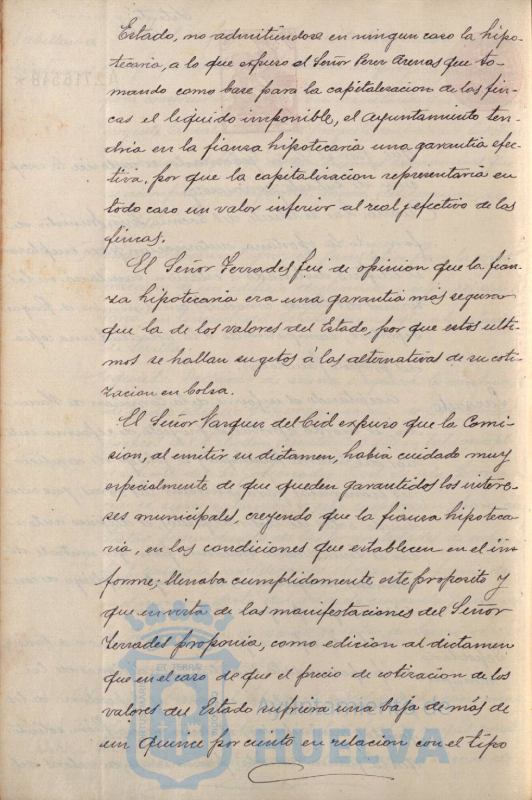 Estado, no admitiéndose en ningun caso la hipo-
tecaria, a lo que expuso el Señor Perez Arenas que to-
mando como base para la capitalizacion de las fin-
cas el liquido imponible, el Ayuntamiento ten-
dria en la fianza hipotecaria una garantia efec-
tiva, por que la capitalizacion representaria en
todo caso un valor inferior al real y efectivo de las
fincas.
El Señor Terrades fué de opinion que la fian-
za hipotecaria era una garantia más segura
que la de los valores del Estado, por que estos ulti-
mos se hallan sugetos á las alternativas de su coti-
zacion en bolsa.
El Señor Vazquez del Cid expuso que la Comi-
sion, al emitir su dictamen, habia cuidado muy
especialmente de que queden garantidos los intere-
ses municipales, creyendo que la fianza hipoteca
ria, en las condiciones que establecen en el in
forme; llenaba cumplidamente este proposito y
que en vista de las manifestaciones del Señor
Terrades proponia, como edicion al dictamen
que en el caso de que el precio de cotizacion de los
valores del Estado sufriera una baja de más de
un quince por ciento en relacion con el tipo
Ayuntamiento de
HUELVA